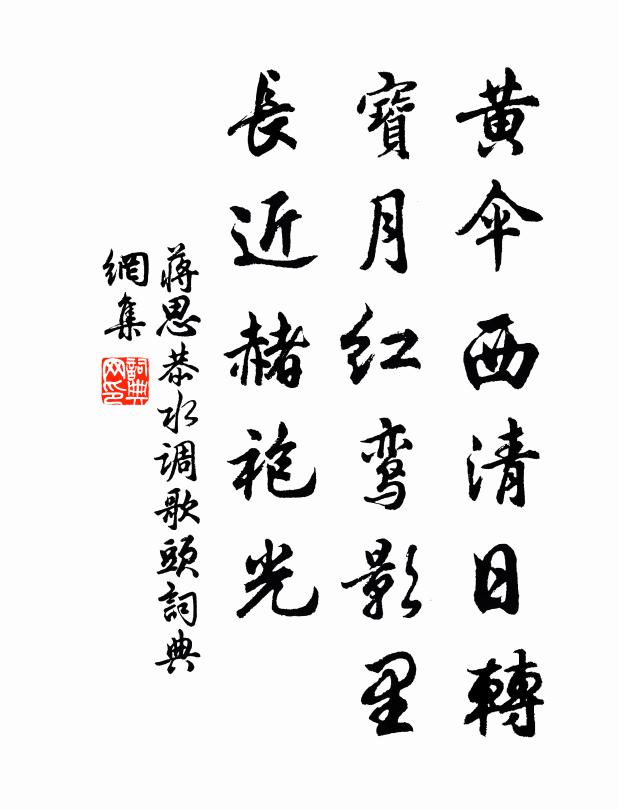 黄伞西清日轉
寶月红鸾影里
長近赭袍光
蔣思恭水调歌頭詞典
網集
詞典
网印